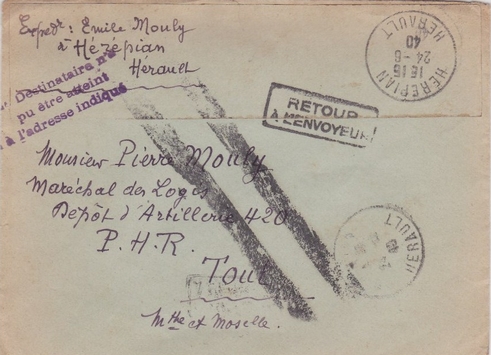 Expedr: Emile Mouly
à Hérépian
Hérault
Destinataire n'a
pu être atteint
à l'adresse indiqué
HEREPIAN
15 15
24-6
40
HERAULT
RETOUR
À L'ENVOYEUR
Monsieur Pierre Mouly
Maréchal des Logis
Dépôt d'Artillerie 420
P.H.R.
Toul
Mthe et Moselle.
HERAULT